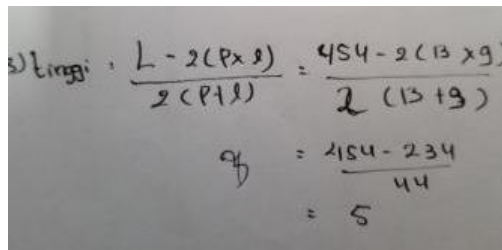 3) tinggi : L - 2(P x l) / 2(P+l) = 454 - 2(13 x 9) / 2 (13 + 9)
= 454 - 234 / 44
= 5